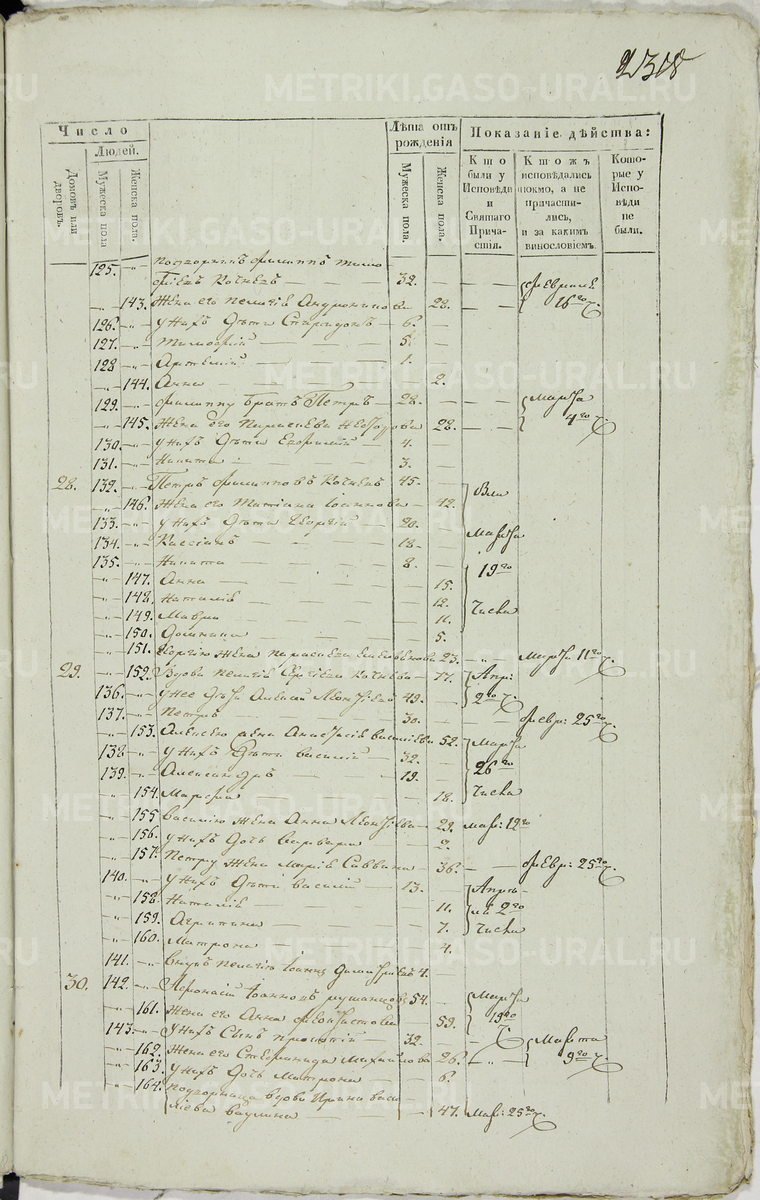 2318
Число
Людей.
Домовъ или дворовъ.
Мужеска пола
Женска пола.
Лѣта отъ рожденія
Мужеска пола.
Женска пола.
Показаніе дѣйства:
Кто были у Исповѣди и Святаго Причастія.
Кто жъ исповѣдались токмо, а не причастились, и за какимъ винословіемъ.
Которые у Исповѣди не были.
125. Подворникъ Филиппъ Тимо-
фѣевъ Кочневъ 32. Февраля
143. Жена его Пелагія Андроникова 28. 16го ч.
126. У нихъ дѣти Спиридонъ 6.
127. Тимофей 5.
128 Артемій 1.
144. Анна 2.
129. Филиппу братъ Петръ 28. Марта
145. Жена его Параскева 28. 4го ч.
130. У нихъ дѣти 4.
131. Никита 3.
28. 132. Петръ Филипповъ Кочневъ 45.
146. Жена его Татіана Іоаннова 42.
133. У нихъ дѣти Георгій 20.
134. Кассіанъ 18. Марта
135. Никита 8.
147. Анна 15. 19го
148. Наталія 12.
149. Мавра 11. Числа
150. Домника 5.
151. Георгію жена Параскева 23. Марта 11го ч.
29. 152. Вдова Пелагія Кочнева 77. Апр:
136. У нее дѣти Алексей 49. 2го ч.
137. Петръ 30. Февр: 25го ч.
153. Алексею жена Анастасія Васильева 52. Марта
138 У нихъ дѣти Василій 32.
139. Александръ 19. 26го
154. Марфа 18. Числа
155 Василію жена Анна 29. Мар: 12го
156. У нихъ дочь Варвара 2.
157. Петру жена Марія Саввина 36. Февр: 25го ч.
140. У нихъ дѣти Василій 13. Апрѣ-
158 Наталія 11. ля 2го
159. Агрипина 7. Числа
160. Матрона 4.
141. Внукъ Пелагіи Іоаннъ Димитріевъ 4.
30. 142. Афонасій Іоанновъ 54. Марта
161. Жена его Анна Феоктистова 59. 19го ч.
143. У нихъ сынъ 32. Марта
162. Жена его Стефанида Михайлова 26. 9го ч.
163. У нихъ дочь Матрона 6.
164. Подворница вдова Ирина Васи-
ліева 47. Мар: 25го ч.
METRIKI.GASO-URAL.RU